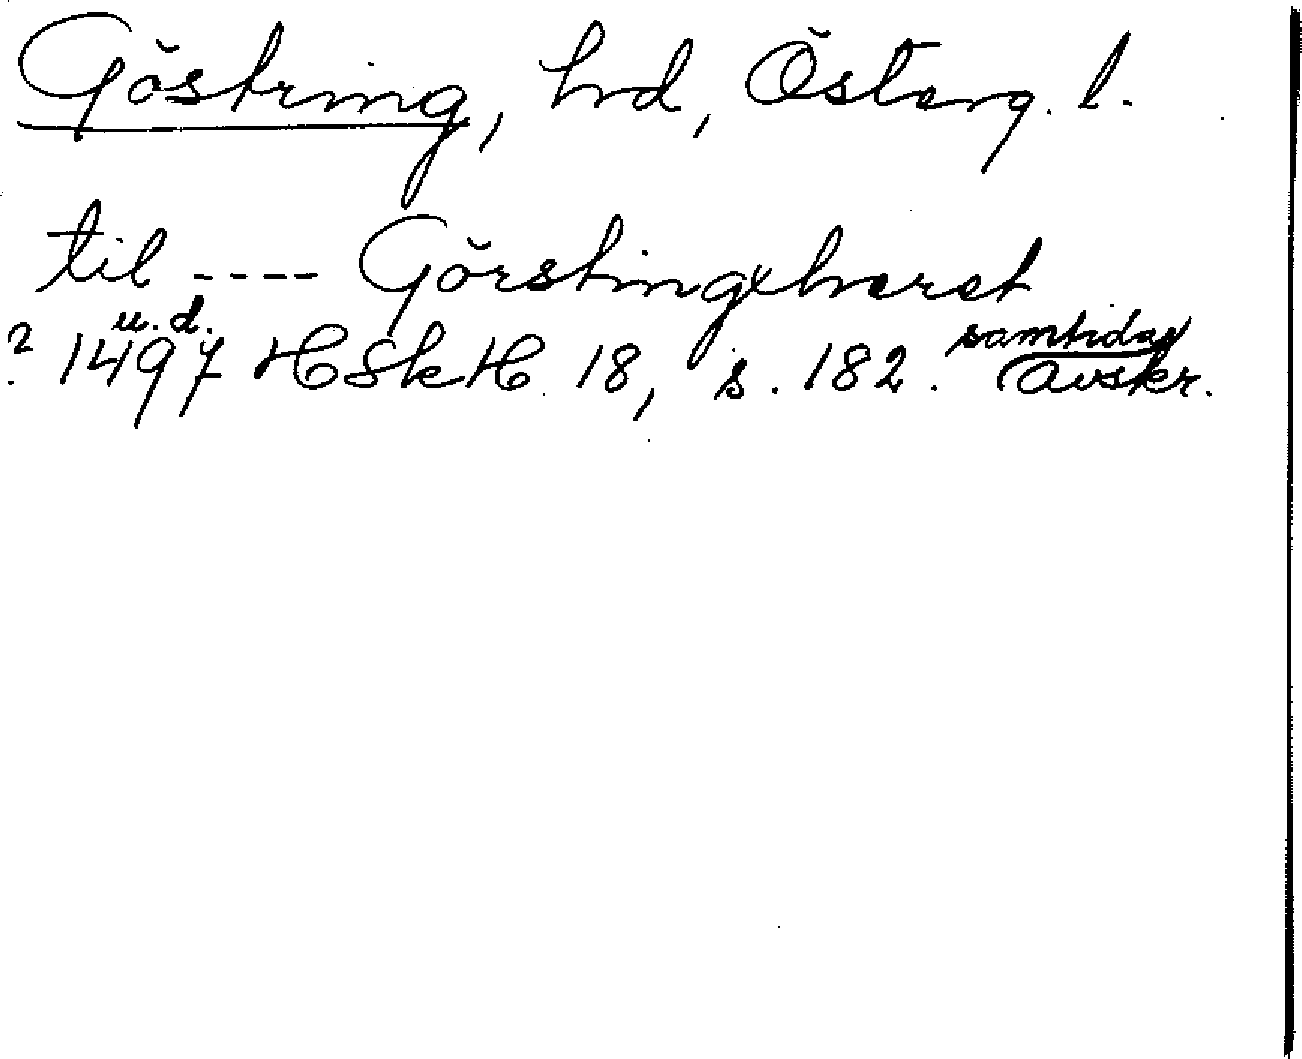 Göstring, hrd, Österg. l.
til ---- Görstingxhæret
u.d.
? 1497 HSkH 18, s. 182. samtida avskr.